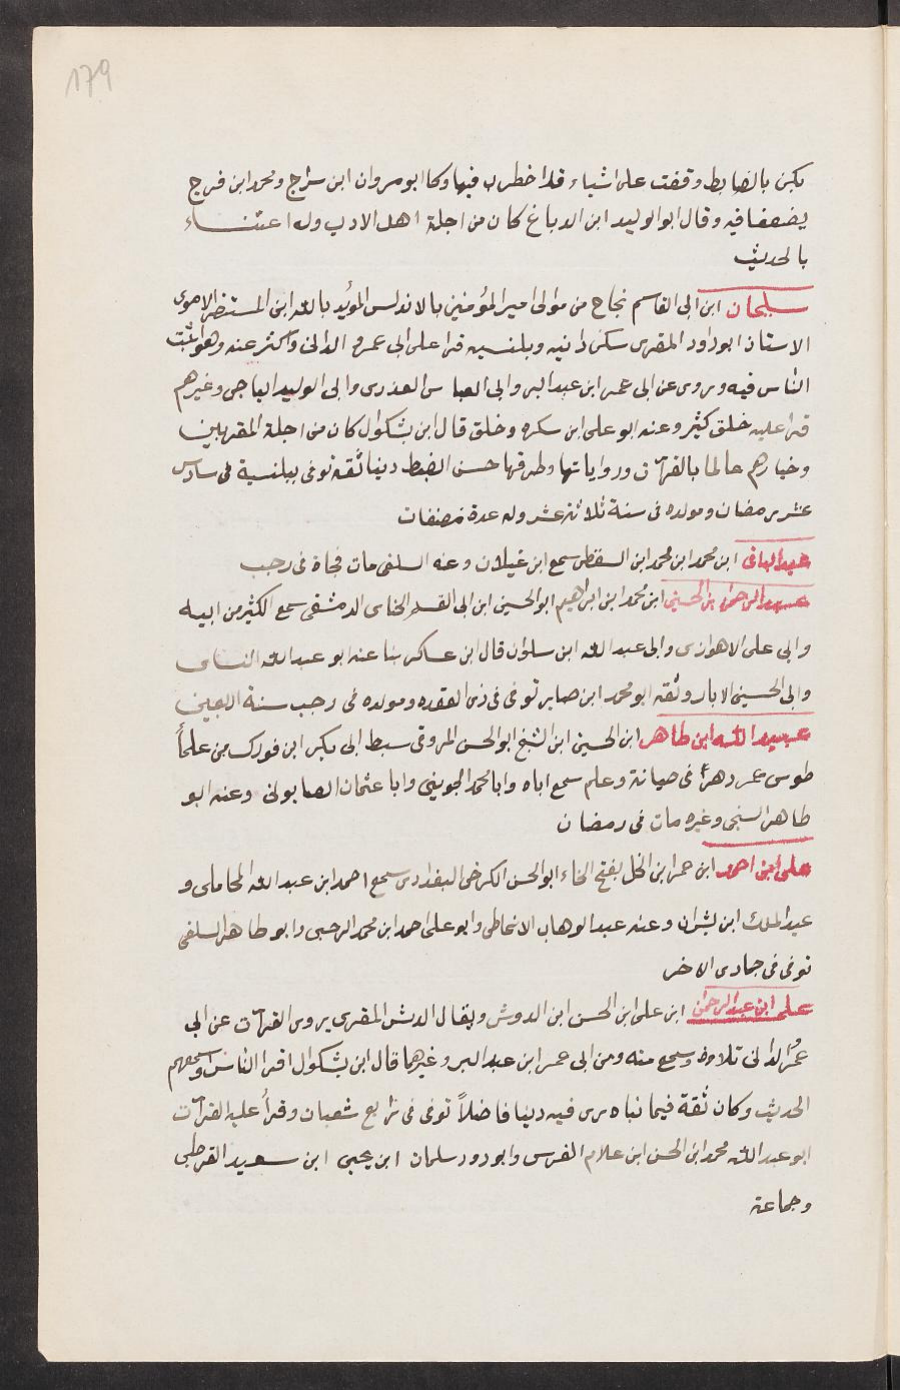 179
يكن بالضابط وقفت على اشياء قد اضطرب فيها وكا ابو مروان ابن سراج ومحمد ابن فرج
يضعفا فيه وقال ابو الوليد ابن الدباغ كان من اجلة اهل الادب وله اعتنــاء
بالحديث
سليمان ابن ابى القاسم نجاح من موالى امير المؤمنين بالاندلس المؤيد بالله ابن المستنصر الاموى
الاستاذ ابو داود المقرى سكن دانيه وبلنسيه قرا على ابى عمرو الدانى واكثر عنه وهو اثبت
الناس فيه وروى عن ابى عمر ابن عبد البر وابى العباس العذرى وابى الوليد الباجى وغيرهم
قرا عليه خلق كثير وعنه ابو على ابن سكره وخلق قال ابن بشكوال كان من اجلة المقريين
وخيارهم عالما بالقرآن ورواياتها وطرقها حسن الضبط دينا ثقه توفى ببلنسية فى سادس
عشر رمضان ومولده فى سنة ثلاثة عشر وله عدة مصنفات
عبد الباقى ابن محمد ابن محمد ابن السقطى سمع ابن غيلان وعنه السلفى مات فجاة فى رجب
عبد الرحمن بن الحسين ابن محمد ابن ابراهيم ابو الحسين ابن ابى القسم الخناى الدمشقى سمع الكثير من ابيه
وابى على الاهوازى وابى عبد الله ابن سلوان قال ابن عساكر ثنا عنه ابو عبد الله
وابى الحسين الابار وثقه ابو محمد ابن صابر توفى فى ذى القعده ومولده فى رجب سنة اربعين
عبيد الله ابن طاهر ابن الحسين ابن الشيخ ابو الحسن الروقى سبط ابى بكر ابن فورك من علماً
طوس عمر دهراً فى صيانة وعلم سمع اباه وابا محمد الجوينى وابا عثمان الصابونى وعنه ابو
طاهر السنجى وغيره مات فى رمضان
على ابن احمد ابن عمر ابن الخل بفتح الخاء ابو الحسن الكرخى البغدادى سمع احمد ابن عبد الله المحاملى و
عبد الملك ابن بشران وعنه عبد الوهاب الانماطى وابو على احمد ابن محمد الرحبى وابو طاهر السلفى
توفى فى جمادى الاخر
على ابن عبد الرحمن ابن على ابن الحسن ابن الدوش ويقال الدش المقرى يروى القرآت عن ابى
عمرو الدانى تلاوة وسمع منه ومن ابى عمر ابن عبد البر وغيرهما قال ابن بشكوال اقرا الناس واسمعهم
الحديث وكان ثقة فيما نباه يرى فيه دينا فاضلاً توفى فى رابع شعبان وقرأ عليه القرآت
ابو عبد الله محمد ابن الحسن ابن غلام الفرس وابو دود سلمان ابن يحيى ابن سعيد القرطبى
وجماعة